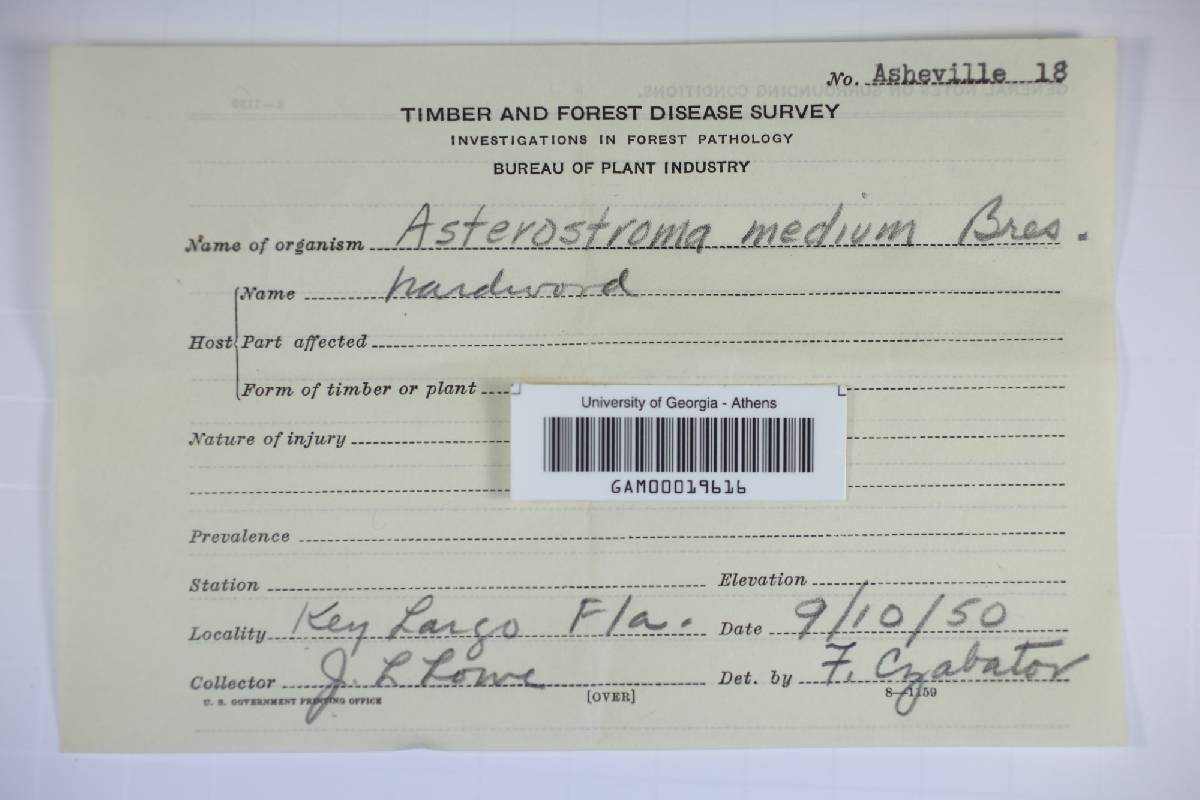 No. Asheville 18
TIMBER AND FOREST DISEASE SURVEY
INVESTIGATIONS IN FOREST PATHOLOGY
BUREAU OF PLANT INDUSTRY
Name of organism Asterostroma medium Bres.
Host
Name hardwood
Part affected
Form of timber or plant
University of Georgia - Athens
Nature of injury
GAM00019616
Prevalence
Station Elevation
Locality Key Largo Fla. Date 9/10/50
Collector J. L Lowe Det. by F. Czabator
U. S. GOVERNMENT PRINTING OFFICE [OVER] 8—1159
GENERAL NOTES ON SURROUNDING CONDITIONS.
8—1159